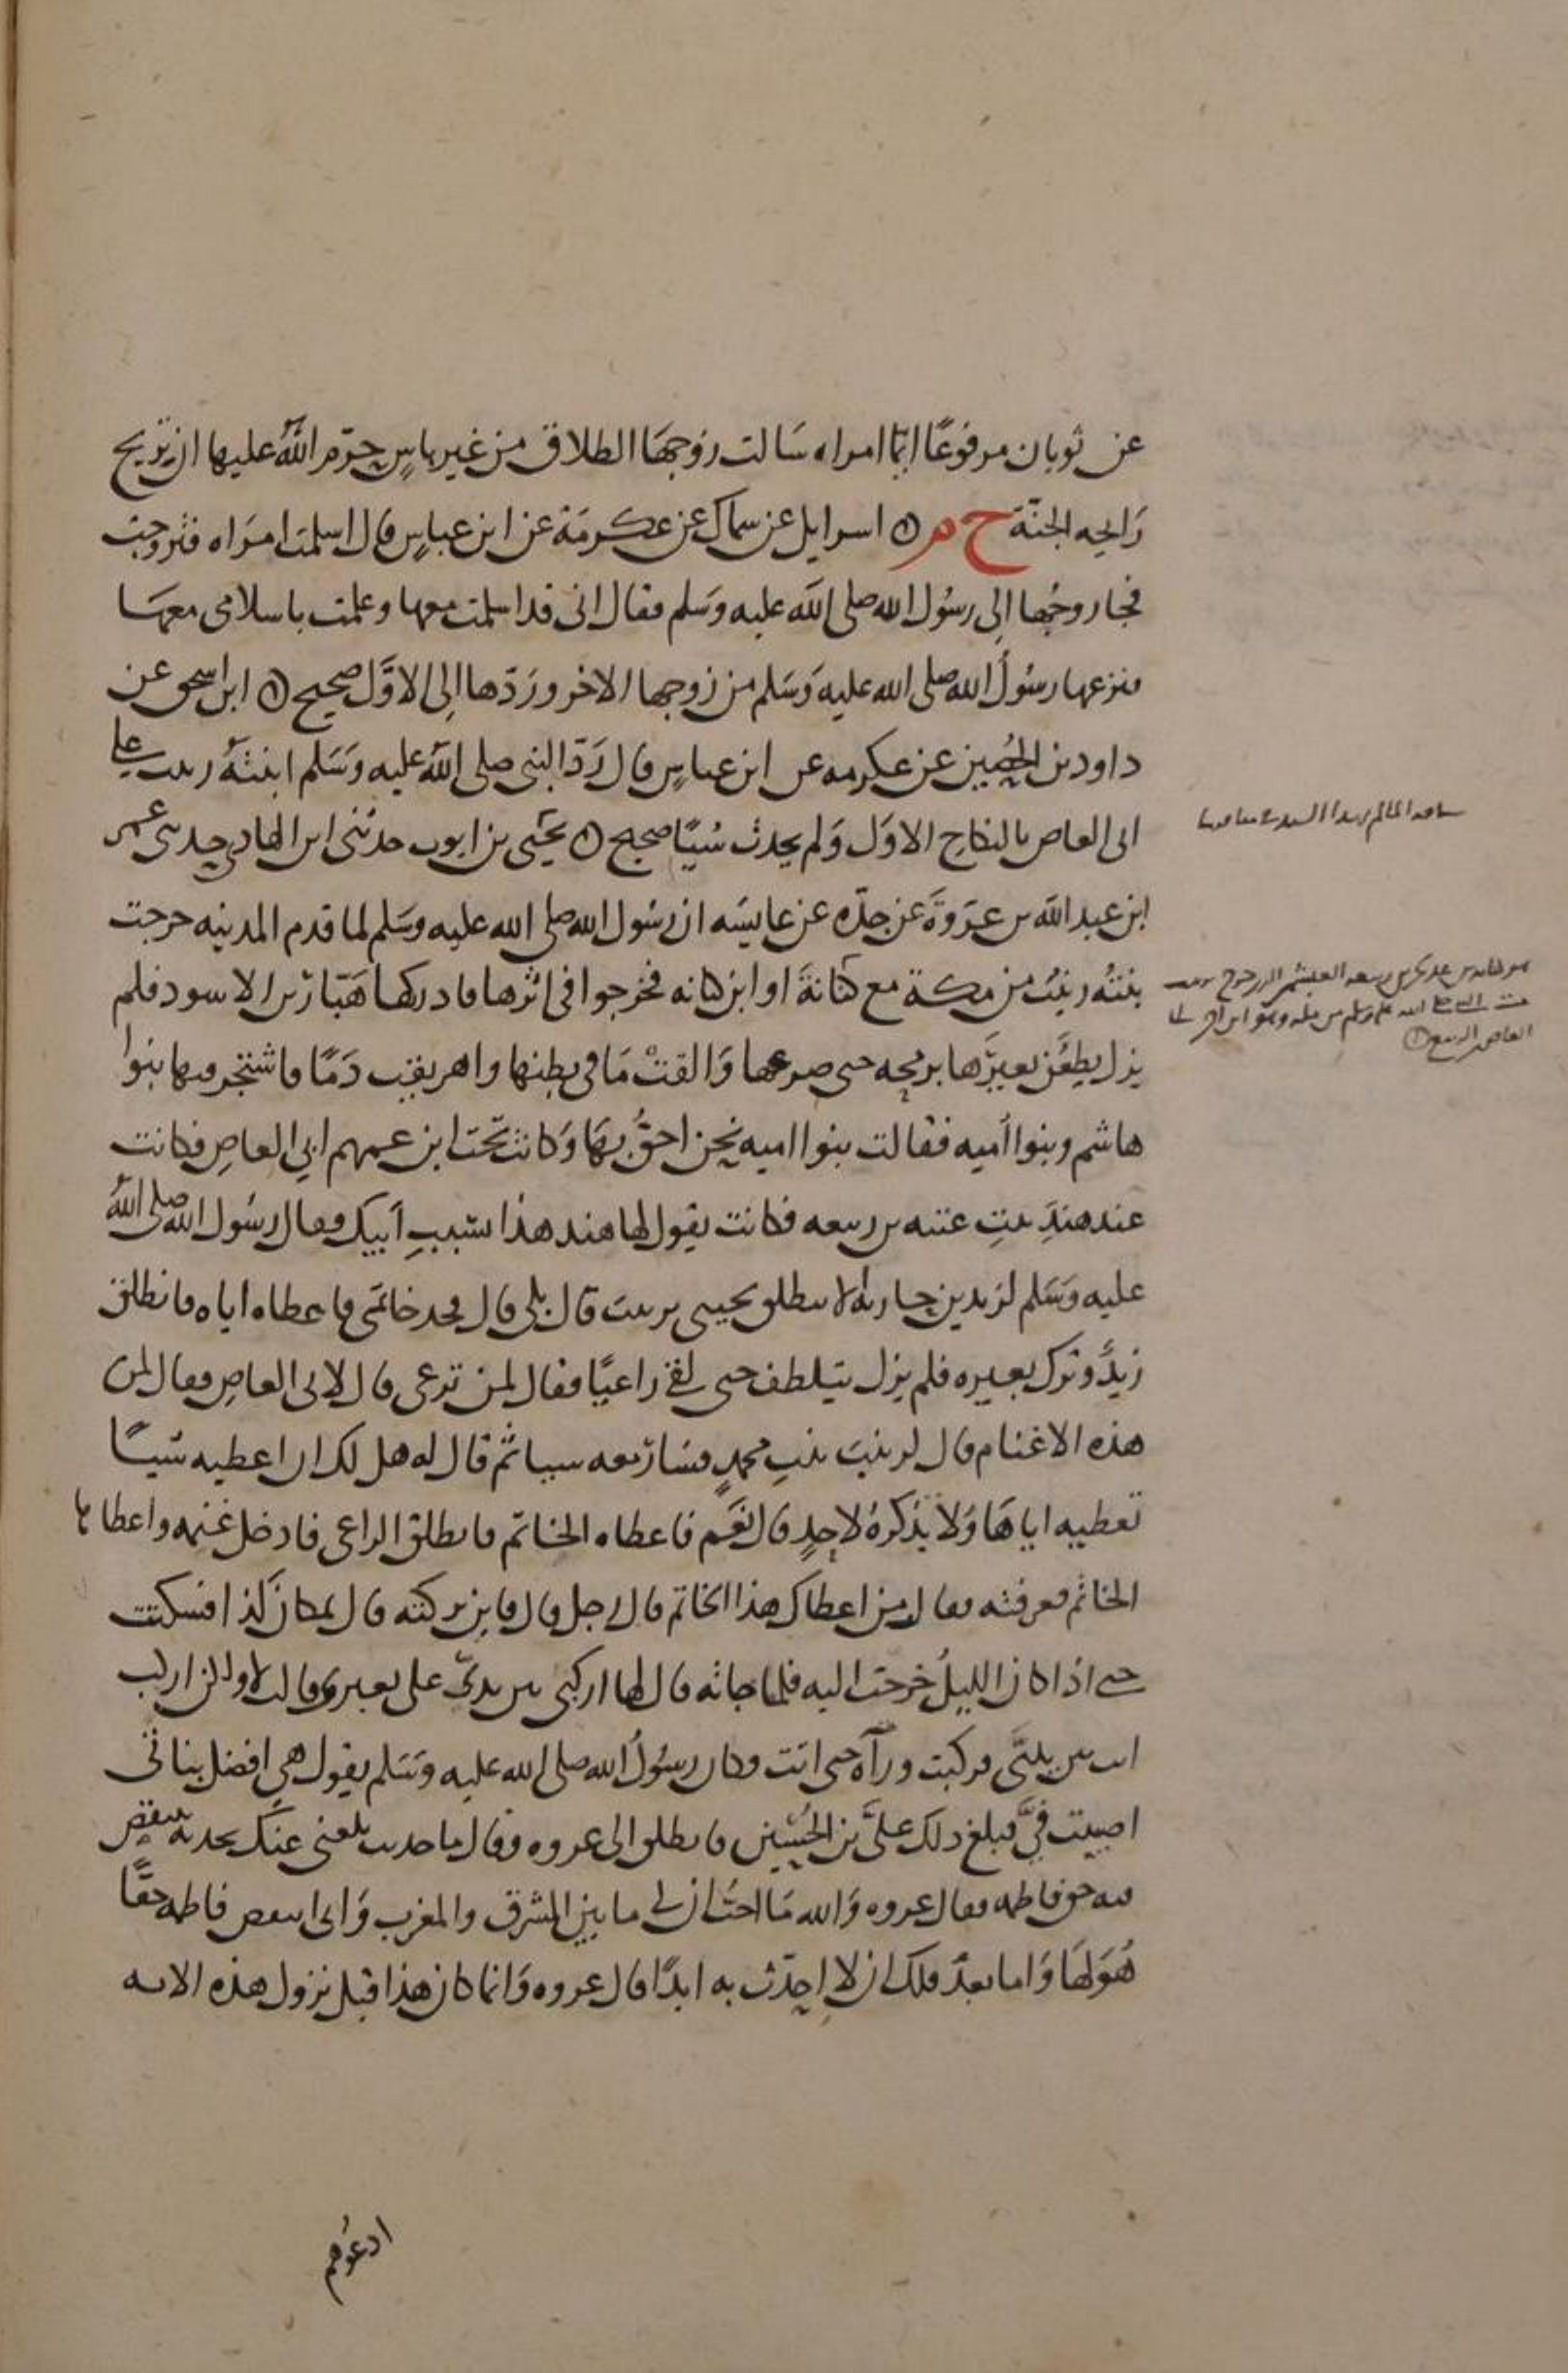 عن ثوبان مرفوعًا ايّما امراه سَالت زوجهَا الطلاق من غير باسٍ حرّم اللهُ عليها ان تريح
رَايحه الجنّة ح م ۞ اسرايل عن سماك عن عكرمَة عن ابن عباسٍ قال اسلمت امرَاه فتزوجت
فجا زوجُها الى رسُول الله صلى الله عليه وسَلم فقال انى قد اسلمت معها وعلمت باسلامى معهَا
فنزعها رسُولُ الله صلى الله عليه وَسَلم من زوجها الاخر ورَدّها الى الاوَّل صحيح ۞ ابن اسحق عن
داود بن الحُصين عن عكرمه عن ابن عباسٍ قال رَدّ النبى صلى اللهُ عليه وَسَلم ابنتهُ زينب على
ابى العاص بالنكاح الاوَل وَلم يحدث شيًا صحيح ۞ يحيَى بن ايوب حدثنى ابن الهادى حدثنى عمر
ابن عبد الله بن عرَوَة عن جدّه عن عايشه ان رسُول الله صلى الله عليه وسَلم لما قدم المدينه خرجت
بنتهُ زينبُ من مكة مع كنانة او ابن كنانه فخرجوا فى اثرها فادركها هَبّار بن الاسود فلم
يزل يطعَن بعيرَها برمحه حتى صرعها وَالقتْ مَا فى بطنها واهريقت دَمًا فاشتجر فيها بنوا
هاشم وبنوا أميه فقالت بنوا اميه نحن احقُّ بهَا وَكانت تحَت ابن عمهم ابى العاصِ فكانت
عند هندَ بنتِ عتبه بن ربيعه فكانت يقول لها هند هذا بسَببِ اَبيك وقال رسُول الله صلى اللهُ
عليه وَسَلم لزيد بن حارثه الا تنطلق تجيى بزينب قال بلى قال فخد خاتمى فاعطاه اياه فانطلق
زيدٌ وترك بعيره فلم يزل يتلطف حتى لقى راعيًا فقال لمن ترعى قال لابى العاصِ فقال لمن
هذه الاغنام قال لزينبَ بنتِ محمدٍ فسَار معه شيا ثم قال له هل لك ان اعطيه شيئًا
تعطيه اياهَا وَلا يذكرهُ لاحدٍ قال نعَم فاعطاه الخاتم فانطلق الراعى فادخل غنمه واعطاها
الخاتم فعرفته فقال من اعطاك هذا الخاتم قال رجل قال فاين تركته قال بمكان كذا فسكتت
حتى اذا كان الليلُ خرجت اليه فلما جاته قال لها اركبى بين يدىّ على بعيرى قالت لا ولكن اركب
انت بين يدىَّ فركبت ورآه حتى اتت وكان رسُولُ الله صلى الله عليه وَسَلم يقول هى افضل بناتى
اصيبت فىَّ فبلغ ذلك علىَّ بن الحُسَين فانطلق الى عروه وقال ما حديث بلغنى عنك تحدثه تنتقص
فيه حق فاطمه فقال عروه وَالله مَا احبّ ان لى ما بين المشرق والمغرب وَانى انتقص فاطمه حقًّا
هُوَ لهَا وَاما بعدُ فلك ان لا احدّث به ابدًا قال عروه وَانما كان هذا قبل نزول هذه الايه
ادعُوهم